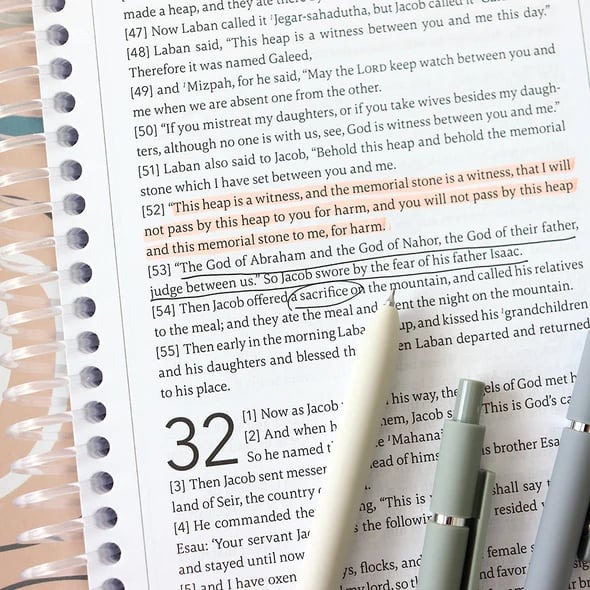 made a heap, and they ate there by
[47] Now Laban called it ¹Jegar-sahadutha, but Jacob called it
[48] Laban said, “This heap is a witness between you and me this day.”
Therefore it was named Galeed,
[49] and ¹Mizpah, for he said, “May the LORD keep watch between you and
me when we are absent one from the other.
[50] “If you mistreat my daughters, or if you take wives besides my daugh-
ters, although no one is with us, see, God is witness between you and me.”
[51] Laban also said to Jacob, “Behold this heap and behold the memorial
stone which I have set between you and me.
[52] “This heap is a witness, and the memorial stone is a witness, that I will
not pass by this heap to you for harm, and you will not pass by this heap
and this memorial stone to me, for harm.
[53] “The God of Abraham and the God of Nahor, the God of their father,
judge between us.” So Jacob swore by the fear of his father Isaac.
[54] Then Jacob offered a sacrifice on the mountain, and called his relatives
to the meal; and they ate the meal and ent the night on the mountain.
[55] Then early in the morning Laba up, and kissed his ¹grandchildren
and his daughters and blessed th en Laban departed and returned
to his place.
32 [1] Now as Jacob his way, the els of God met h
[2] And when h em, Jacob s “This is God’s ca
So he named t e ¹Mahana
[3] Then Jacob sent messen ead of hims s brother Esa
land of Seir, the country
[4] He commanded the ng, “This is shall say
Esau: ‘Your servant Ja the followi resided
and stayed until now female s
[5] and I have oxen ys, flocks, and nd favor
my lord, so th